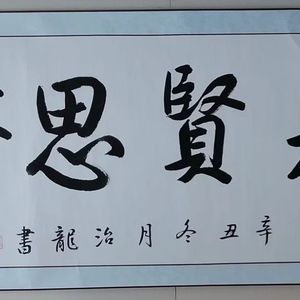 賢思
辛丑冬月治龍書